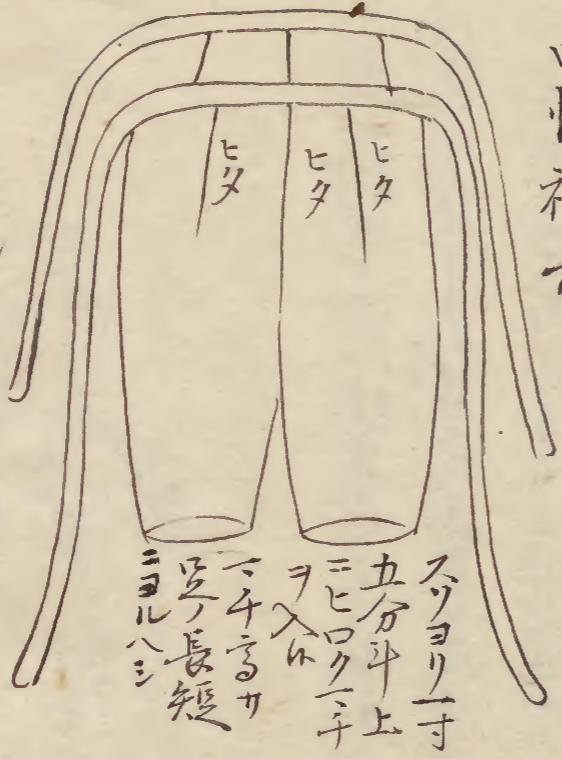 ヒタ
ヒタ
ヒタ
スソヨリ一寸
五分斗上
ニヒロクマチ
ヲ入ル
マチ高サ
足ノ長短
ニヨルヘシ